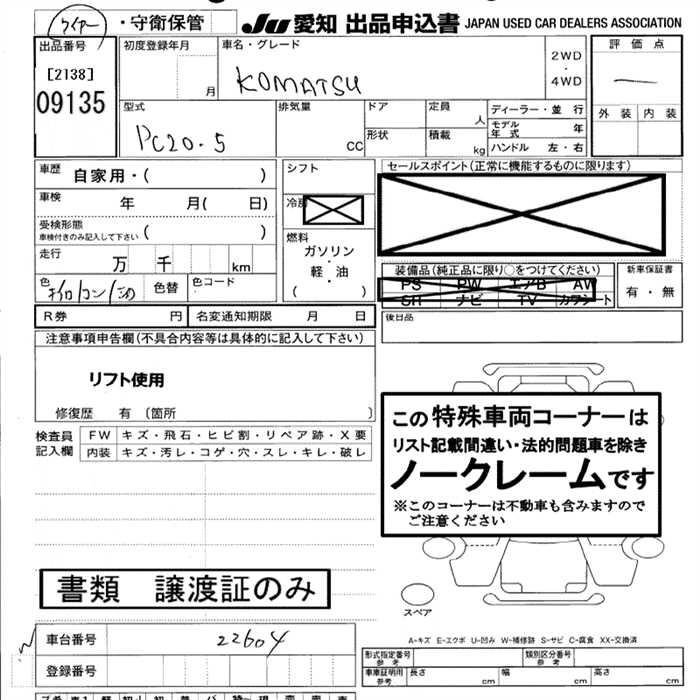 ・守衛保管
JU 愛知 出品申込書 JAPAN USED CAR DEALERS ASSOCIATION
出品番号
[2138]
09135
初度登録年月
月
車名・グレード
KOMATSU
2WD
・
4WD
評価点
外装 内装
型式
PC20-5
排気量
CC
ドア
形状
定員
人
積載
kg
ディーラー・並行
モデル年式 年
ハンドル 左・右
車歴 自家用・( )
車検 年 月( 日)
受検形態
車検付きのみ記入して下さい ( )
走行
万 千 km
色
色替
色コード
シフト
冷房
燃料
ガソリン
・
軽・油
( )
セールスポイント(正常に機能するものに限ります)
装備品(純正品に限り○をつけてください)
PS PW エアB AW
SR ナビ TV カワシート
新車保証書
有・無
後日品
R券 円 名変通知期限 月 日
注意事項申告欄(不具合内容等は具体的に記入して下さい)
リフト使用
修復歴 有 〔箇所 〕
検査員
記入欄
FW キズ・飛石・ヒビ割・リペア跡・X要
内装 キズ・汚レ・コゲ・穴・スレ・キレ・破レ
この特殊車両コーナーは
リスト記載間違い・法的問題車を除き
ノークレームです
※このコーナーは不動車も含みますので
ご注意ください
書類 譲渡証のみ
スペア
A-キズ E-エクボ U-凹み W-補修跡 S-サビ C-腐食 XX-交換済
車台番号 22604
登録番号
形式指定番号
参考
類別区分番号
参考
車庫証明用
参考
長さ cm 幅 cm 高さ cm